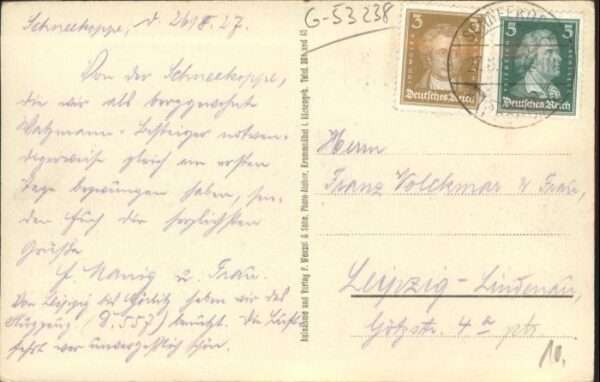 Schneekoppe, d. 26/8.27.
Von der Schneekoppe,
die wir als berggewohnte
Watzmann-Besteiger notwen-
digerweise gleich am ersten
Tage bezwungen haben, sen-
den Euch die herzlichsten
Grüße
u. Frau.
Von Leipzig bis Görlitz haben wir das
Flugzeug (D. 557) benutzt. Die Luft-
fahrt war unvergeßlich schön.
G-53 238
Aufnahme und Verlag F. Wenzel & Sohn, Photo-Atelier, Krummhübel i. Riesengeb. Telef.
3
Deutsches Reich
5
Deutsches Reich
Herrn
Franz Volckmar u Frau,
Leipzig-Lindenau,
Götzstr. 4a ptr
10.